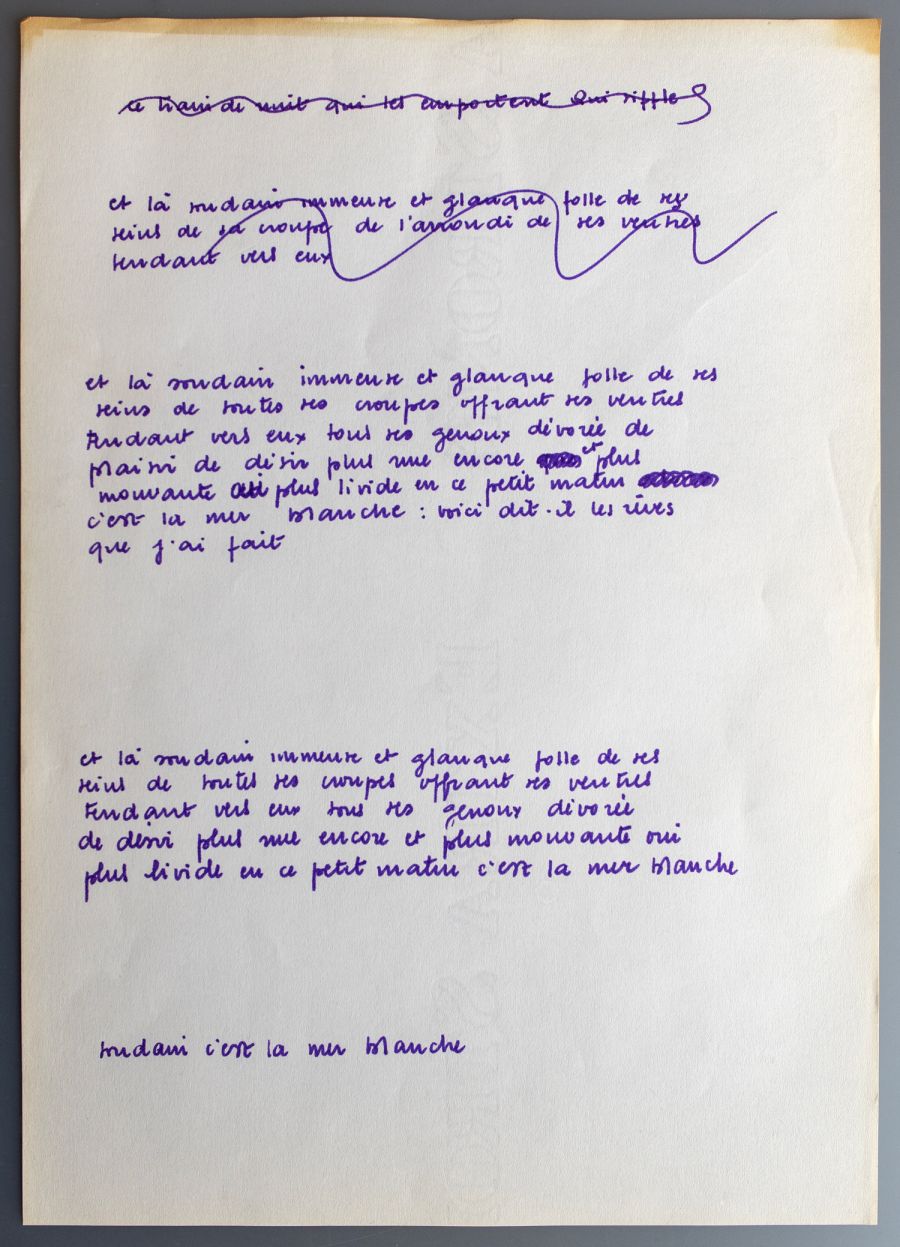 ce train de nuit qui les emportent qui siffle
et là soudain immense et glauque folle de ses
seins de sa croupe de l'arrondi de ses ventres
tendant vers eux
et là soudain immense et glauque folle de ses
seins de toutes ses croupes offrant ses ventres
tendant vers eux tous ses genoux dévorée de
plaisir de désir plus nue encore et plus
mouvante plus livide en ce petit matin
c'est la mer blanche : voici dit-il les rêves
que j'ai fait
et là soudain immense et glauque folle de ses
seins de toutes ses croupes offrant ses ventres
tendant vers eux tous ses genoux dévorée
de désir plus nue encore et plus mouvante oui
plus livide en ce petit matin c'est la mer blanche
soudain c'est la mer blanche